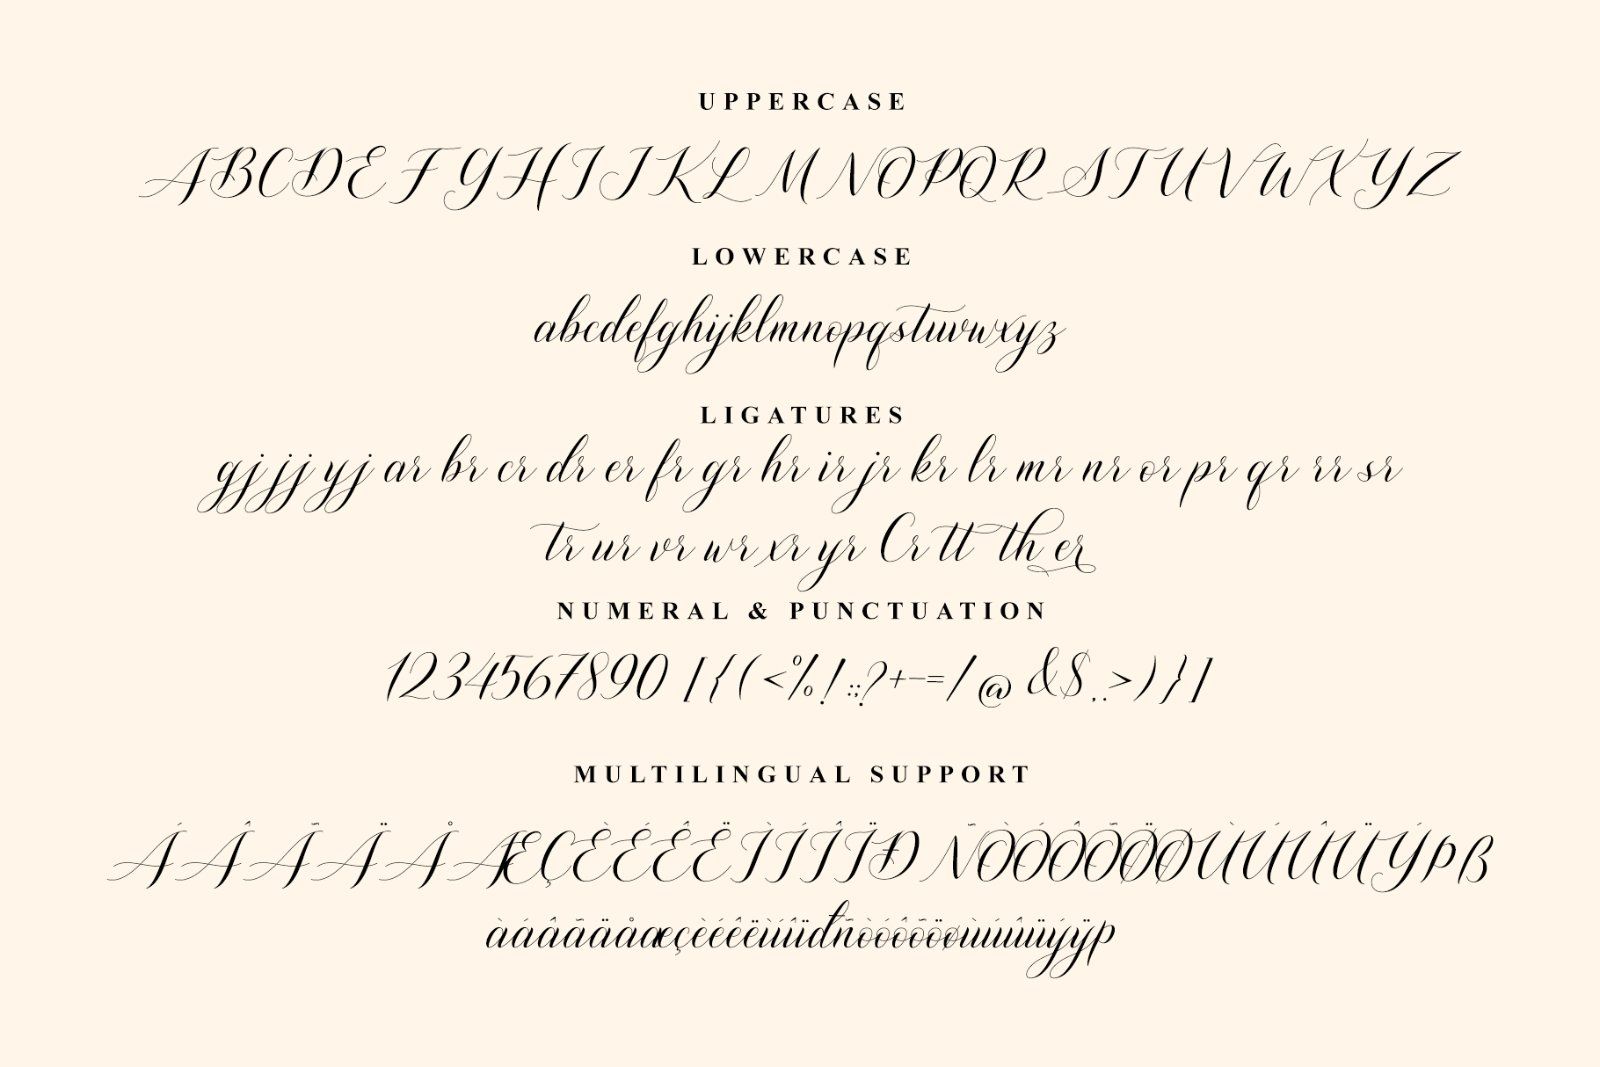 UPPERCASE
ABCDEFGHIJKLMNOPQRSTUVWXYZ
LOWERCASE
abcdefghijklmnopqrstuvwxyz
LIGATURES
gj jj yj ar br cr dr er fr gr hr ir jr kr lr mr nr or pr qr rr sr
tr ur vr wr xr yr Cr tt th er
NUMERAL & PUNCTUATION
1234567890 [{(<%!:;?+-=/@&$,.>)}]
MULTILINGUAL SUPPORT
ÁÂÃÄÅÆÇÈÉÊËÌÍÎÏÐÑÒÓÔÕÖØÙÚÛÜÝÞß
àáâãäåæçèéêëìíîïđñòóôõöøùúûüýÿþ